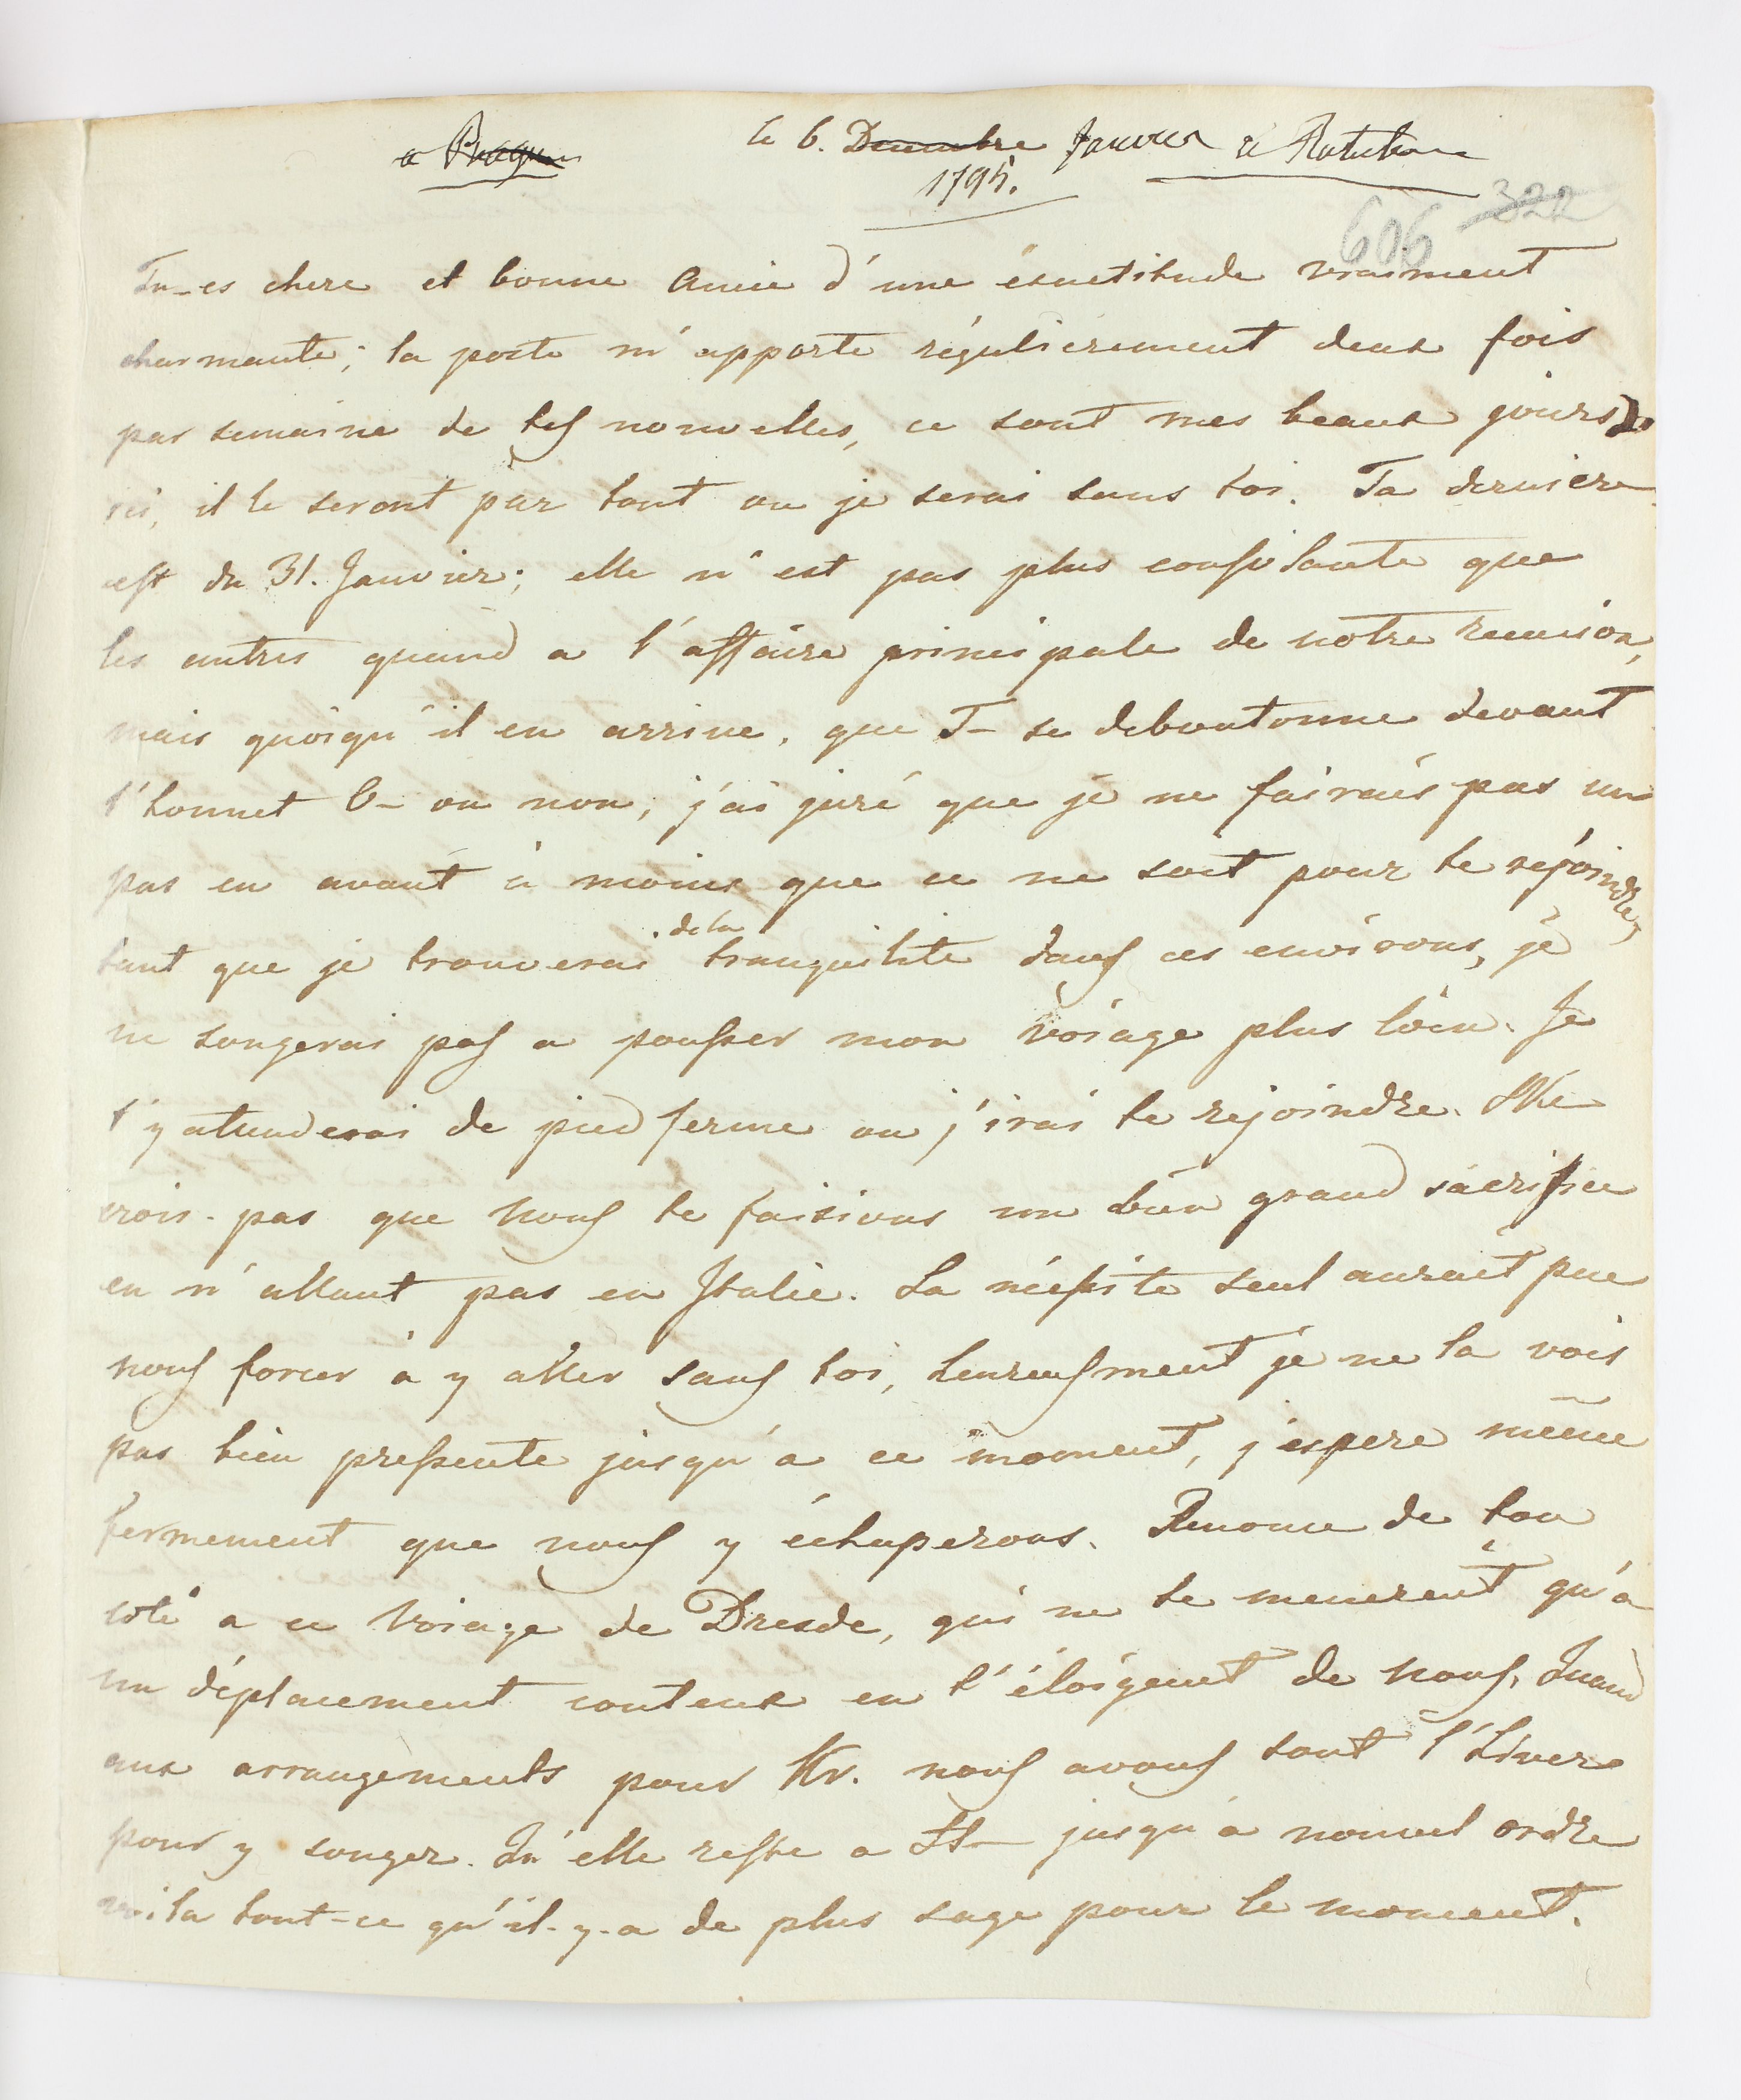 a Prague
le 6. Decembre Janvier a Ratisbone
1795.
606 322
Tu-es chere et bonne Amie d'une éxactitude vraiment
charmante; la poste m'apporte régulierement deux fois
par semaine de tes nouvelles, ce sont mes beaux jours
ici, il le seront par tout ou je serai sans toi. Ta derniere
est du 31. Janvier; elle n'est pas plus consolante que
les autres quand a l'affaire principale de notre reunion,
mais quoiqu'il en arrive, que T- se deboutonne devant
l'honnet C- ou non; j'ai juré que je ne fairais pas un
pas en avant à moins que ce ne soit pour te rejoindre,
tant que je trouverai de la tranquilité dans ces environs, je
ne songerai pas a pousser mon voiage plus loin. Je
t'y attenderai de pied ferme ou j'irai te rejoindre. Ne
crois-pas que nous te faisions un bien grand sacrifice
en n'allant pas en Italie. La nécessite seul aurait pue
nous forcer à y aller sans toi, heureusment je ne la vois
pas bien pressente jusqu'a ce moment, j'espere même
fermement que nous y échaperons. Renonce de ton
coté a ce voiage de Dresde, qui ne te menerent qu'a
un déplacement couteux en t'éloigent de nous. Quand
aux arrangements pour Kr. nous avons tout l'hiver
pour y songer. Qu'elle reste a St- jusqu'a nouvel ordre
voila tout-ce qu'il-y-a de plus sage pour le moment.